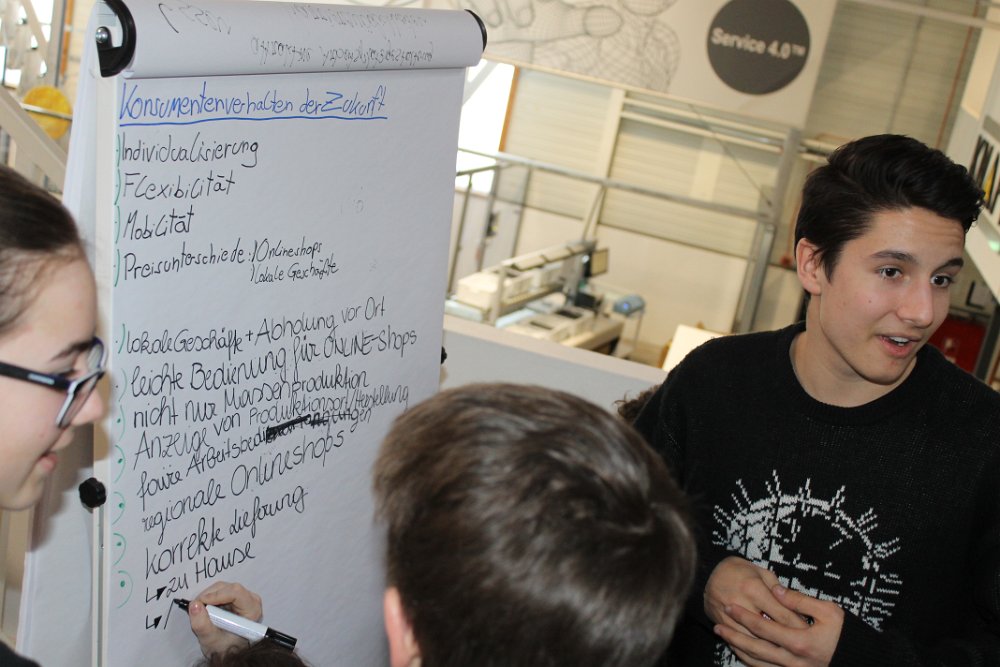 Service 4.0™
Konsumentenverhalten der Zukunft
Individualisierung
Flexibilität
Mobilität
Preisunterschiede: Onlineshops
Lokale Geschäfte
lokale Geschäfte + Abholung vor Ort
leichte Bedienung für ONLINE-Shops
nicht nur Massenproduktion
Anzeige von Produktionsort/Herstellung
faire Arbeitsbedingungen
regionale Onlineshops
korrekte Lieferung
↳ zu Hause
↳ /